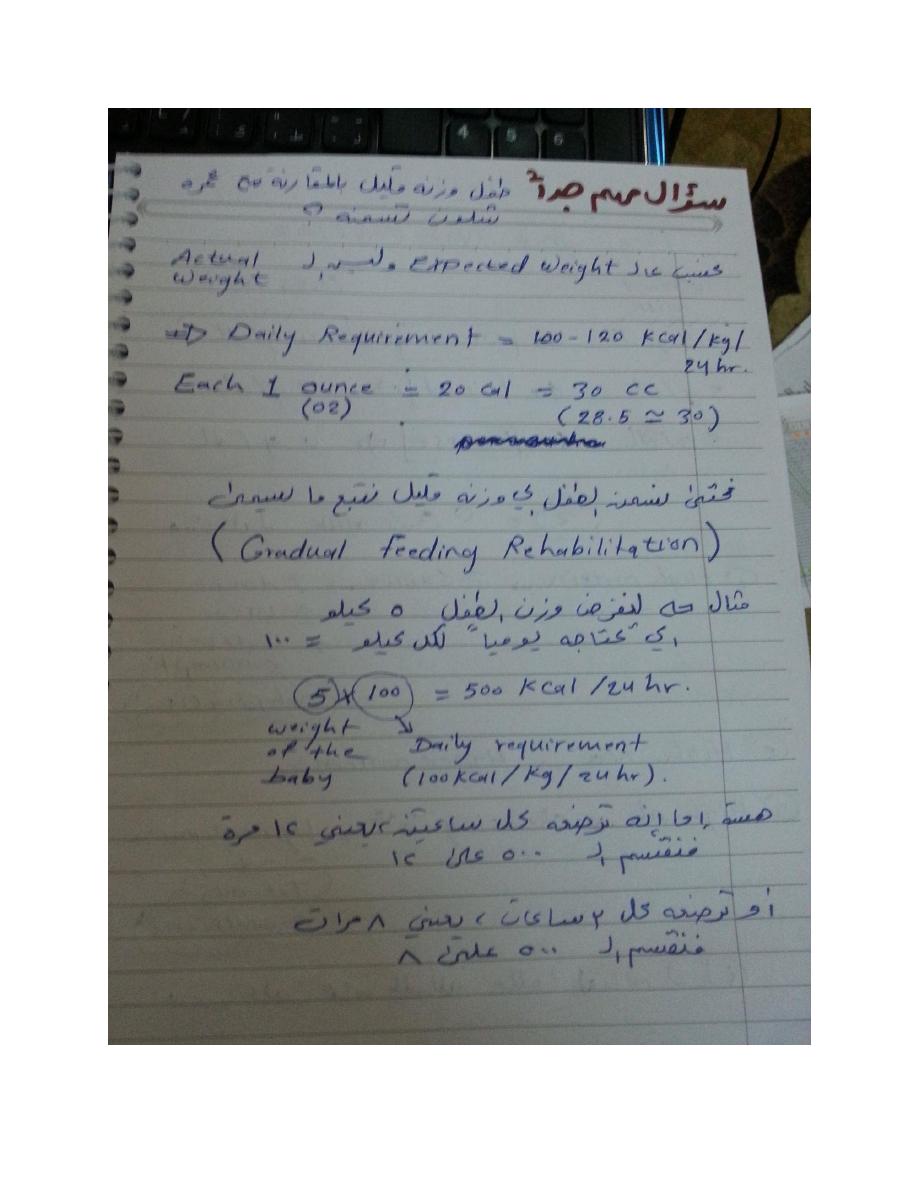 4 5 6
سؤال مهم جداً طفل وزنه قليل بالمقارنة مع عمره
شلون تسمنه ؟
نحسب على Expected Weight وليس الـ Actual Weight
=> Daily Requirement = 100-120 Kcal/Kg/
24 hr.
Each 1 ounce = 20 cal = 30 cc
(oz) (28.5 ≃ 30)
فحتى نسمن الطفل الي وزنه قليل نتبع ما يسمى
(Gradual Feeding Rehabilitation)
مثال حه لنفرض وزن الطفل ٥ كيلو
الي يحتاجه يومياً لكل كيلو = ١٠٠
5 × 100 = 500 Kcal /24 hr.
weight of the baby
Daily requirement
(100 Kcal / Kg / 24 hr).
هسة اما انه ترضعه كل ساعتين، يعني ١٢ مرة
فنقسم الـ ٥٠٠ على ١٢
أو ترضعه كل ٣ ساعات، يعني ٨ مرات
فنقسم الـ ٥٠٠ على ٨